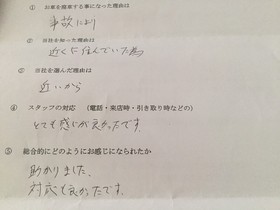 ① お車を廃車する事になった理由は
事故により
② 当社を知った理由は
近くに住んでいた為
③ 当社を選んだ理由は
近いから
④ スタッフの対応 (電話・来店時・引き取り時などの)
とても感じが良かったです。
⑤ 総合的にどのようにお感じになられたか
助かりました。
対応も良かったです。